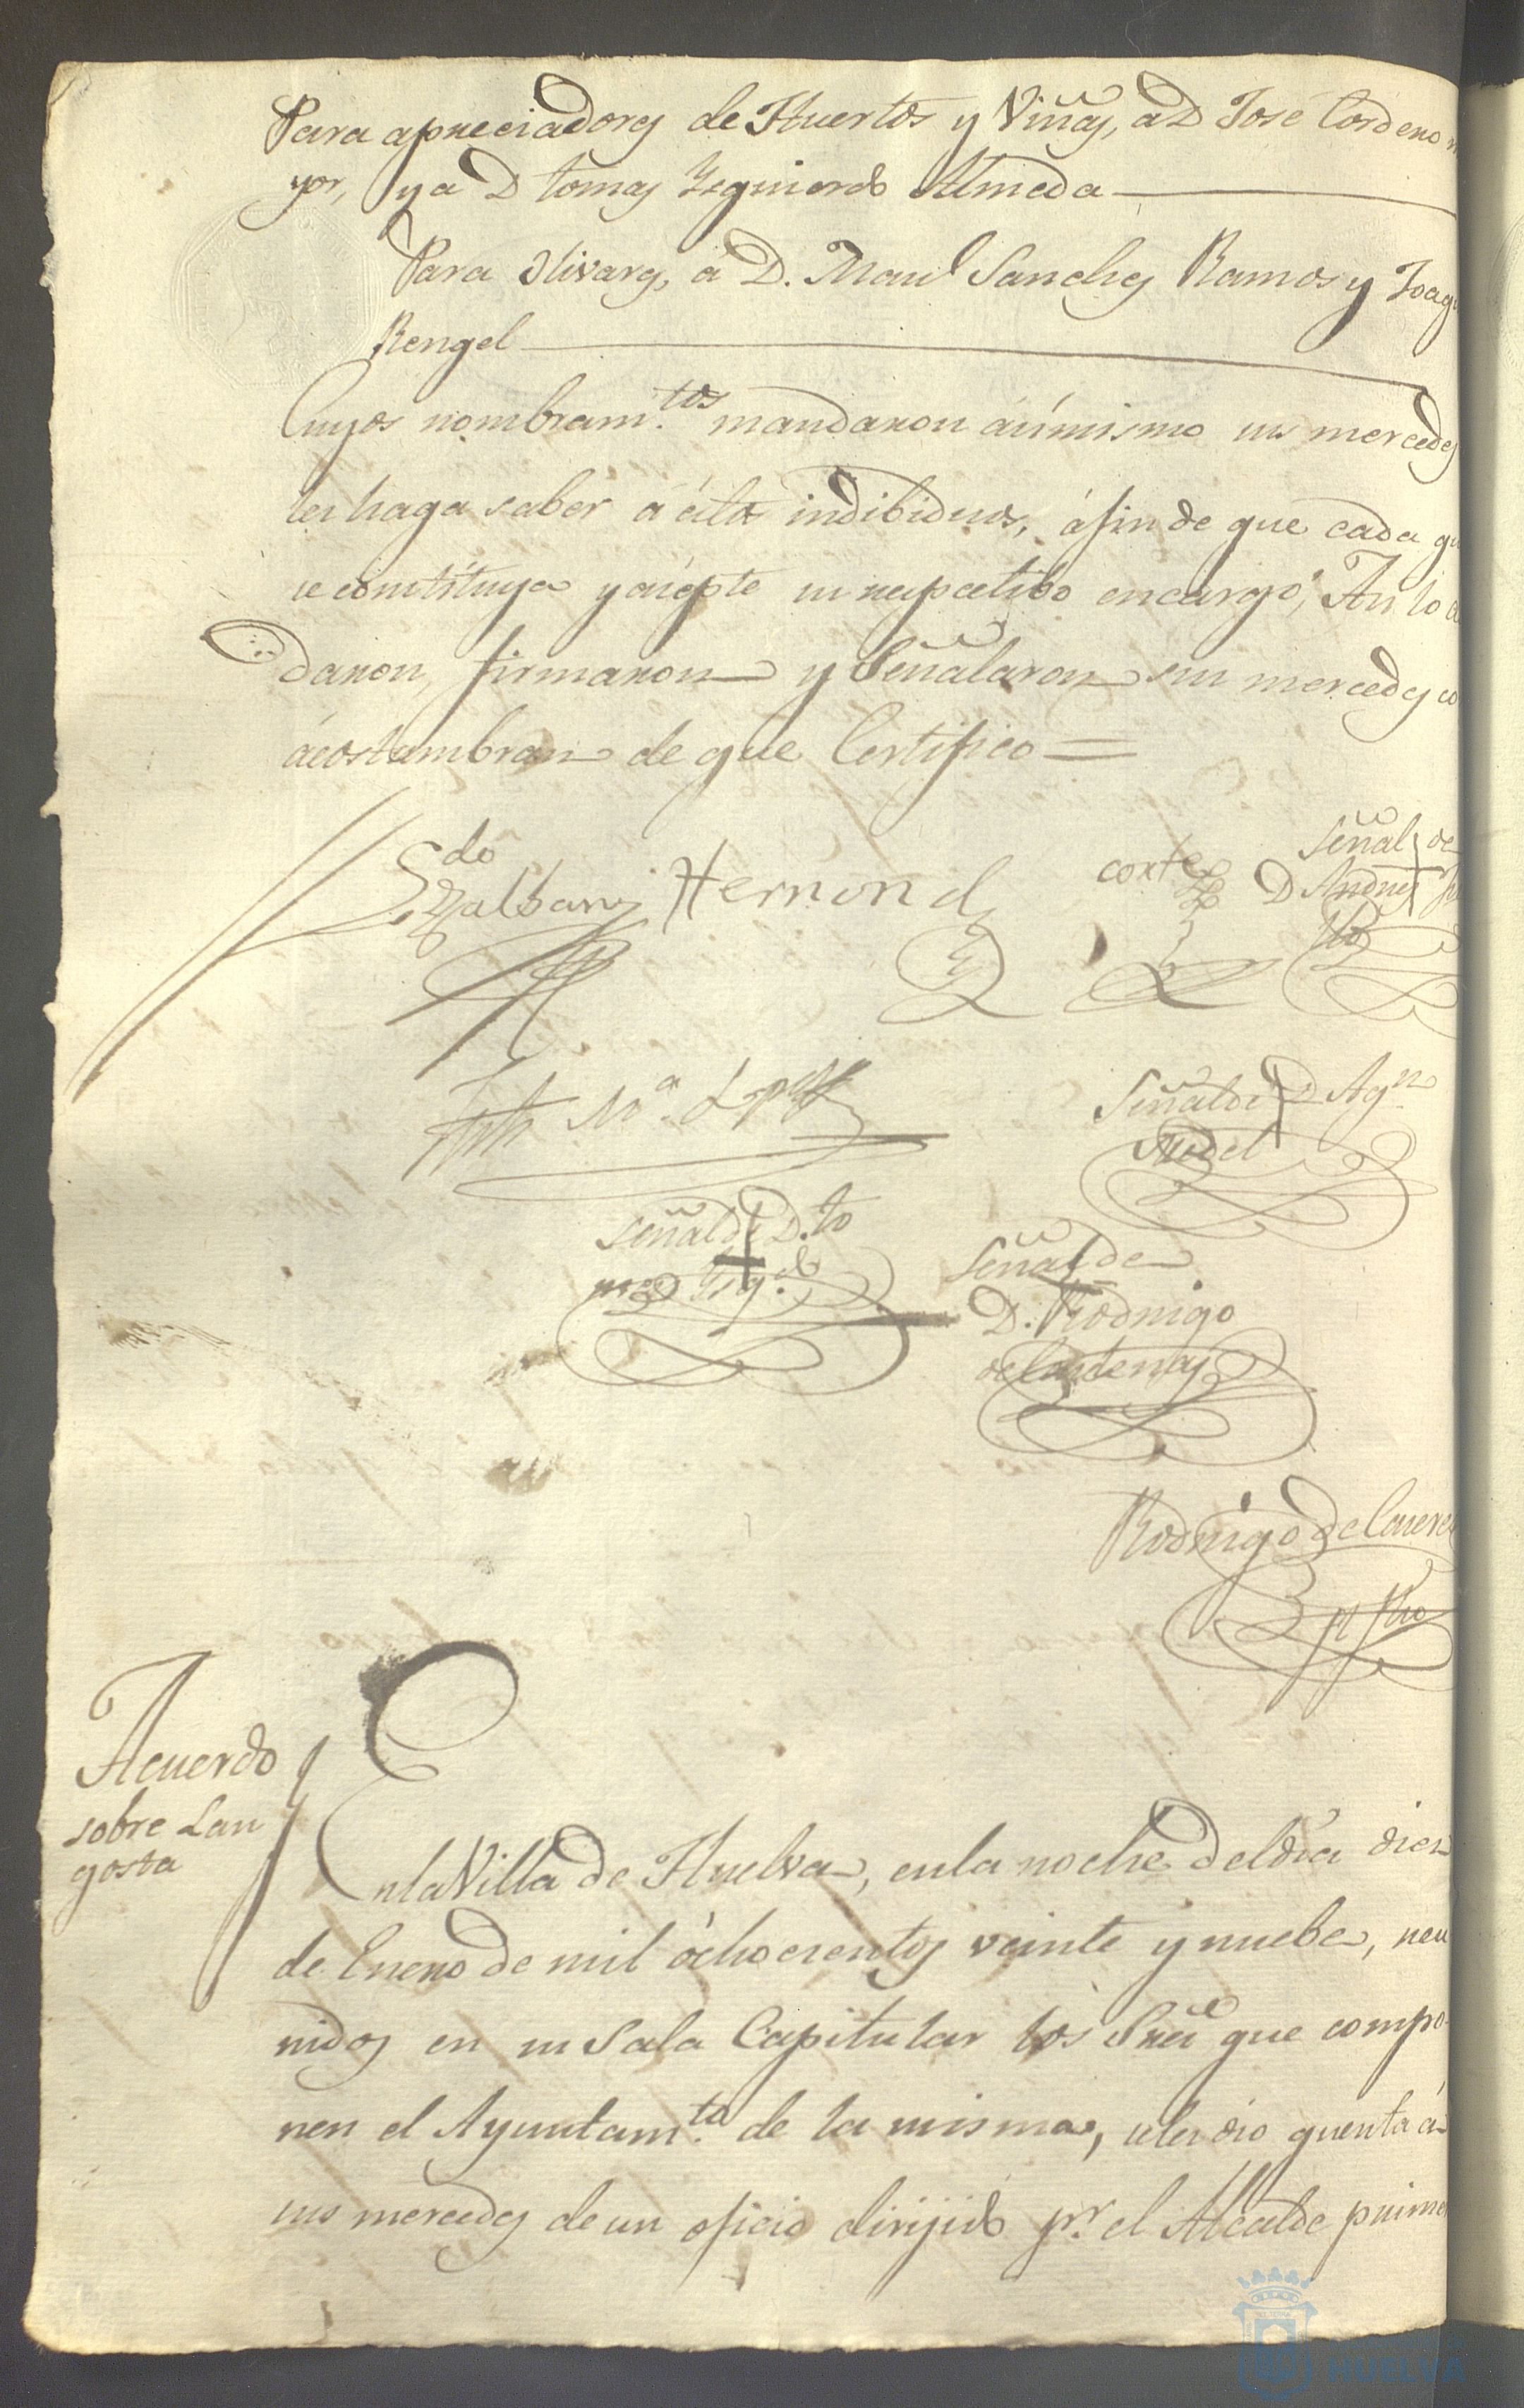 Para apreciadores de Huertos y Viñas, a D José Cordero m
yor, y a D tomas Yzquierdo Almeda
Para Olivares, á D. Man.l Sanches Ramos y Joaq
Rengel
Cuyos nombram.tos mandaron ásimismo sus mercedes
les haga saber á éstos indibiduos, áfin de que cada q
se constituya y acépte su respectibo encargo; Asi lo
daron, firmaron y Señalaron sus mercedes co
ácostumbran de que Certifico =
Hernand
corte
Señal de
D Andres
M.a
Señal de D Ag.n
Señal de D. to
mas Yzq.do
Señal de
D. Rodrigo
de Cardenas
Rodrigo de
Acuerdo
sobre Lan
gosta
En la Villa de Huelva, en la noche del día diez
de Enero de mil óchocientos veinte y nuebe, reu
nidos en su Sala Capitular los Sres que compo
nen el Ayuntam.to de la misma, se les dio quenta á
sus mercedes de un oficio dirijido pr. el Alcalde prime
HUELVA